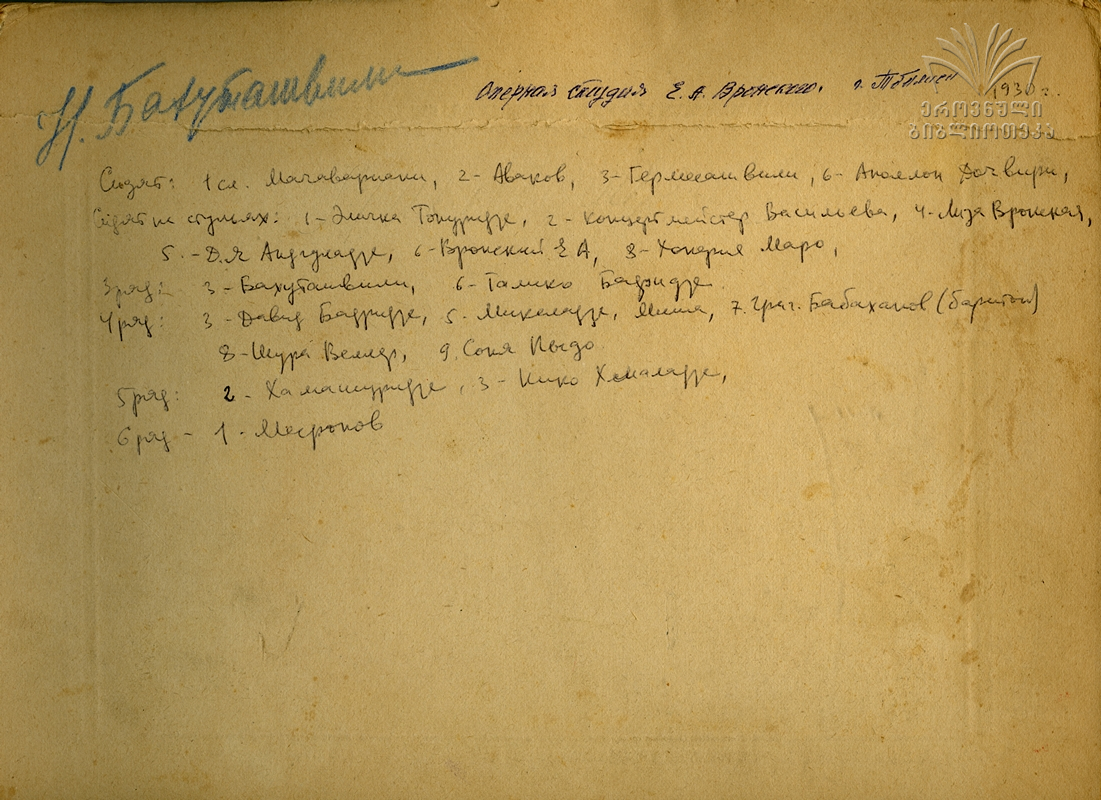 Н. Бахуташвили
Оперная студия Е. А. Вронского. г. Тбилиси 1930 г.
ეროვნული
ბიბლიოთეკა
Сидят: 1 сл. Мачавариани, 2 - Аваков, 3 - Гермесашвили, 6 - Аполлон
Сидят на стульях: 1 - Эличка Топуридзе, 2 - концертмейстер Васильева, 4 - Лиза Вронская,
5 - Д. Я. Андгуладзе, 6 - Вронский Е А, 8 - Хоперия Маро,
3 ряд: 3 - Бахуташвили, 6 - Тамико
4 ряд: 3 - Давид Бадридзе, 5. Миколадзе, Миша, 7. Григ. Бабаханов (баритон)
8 - Шура Веллер, 9. Соня
5 ряд: 2 - 3 - Кико
6 ряд - 1 - Месропов